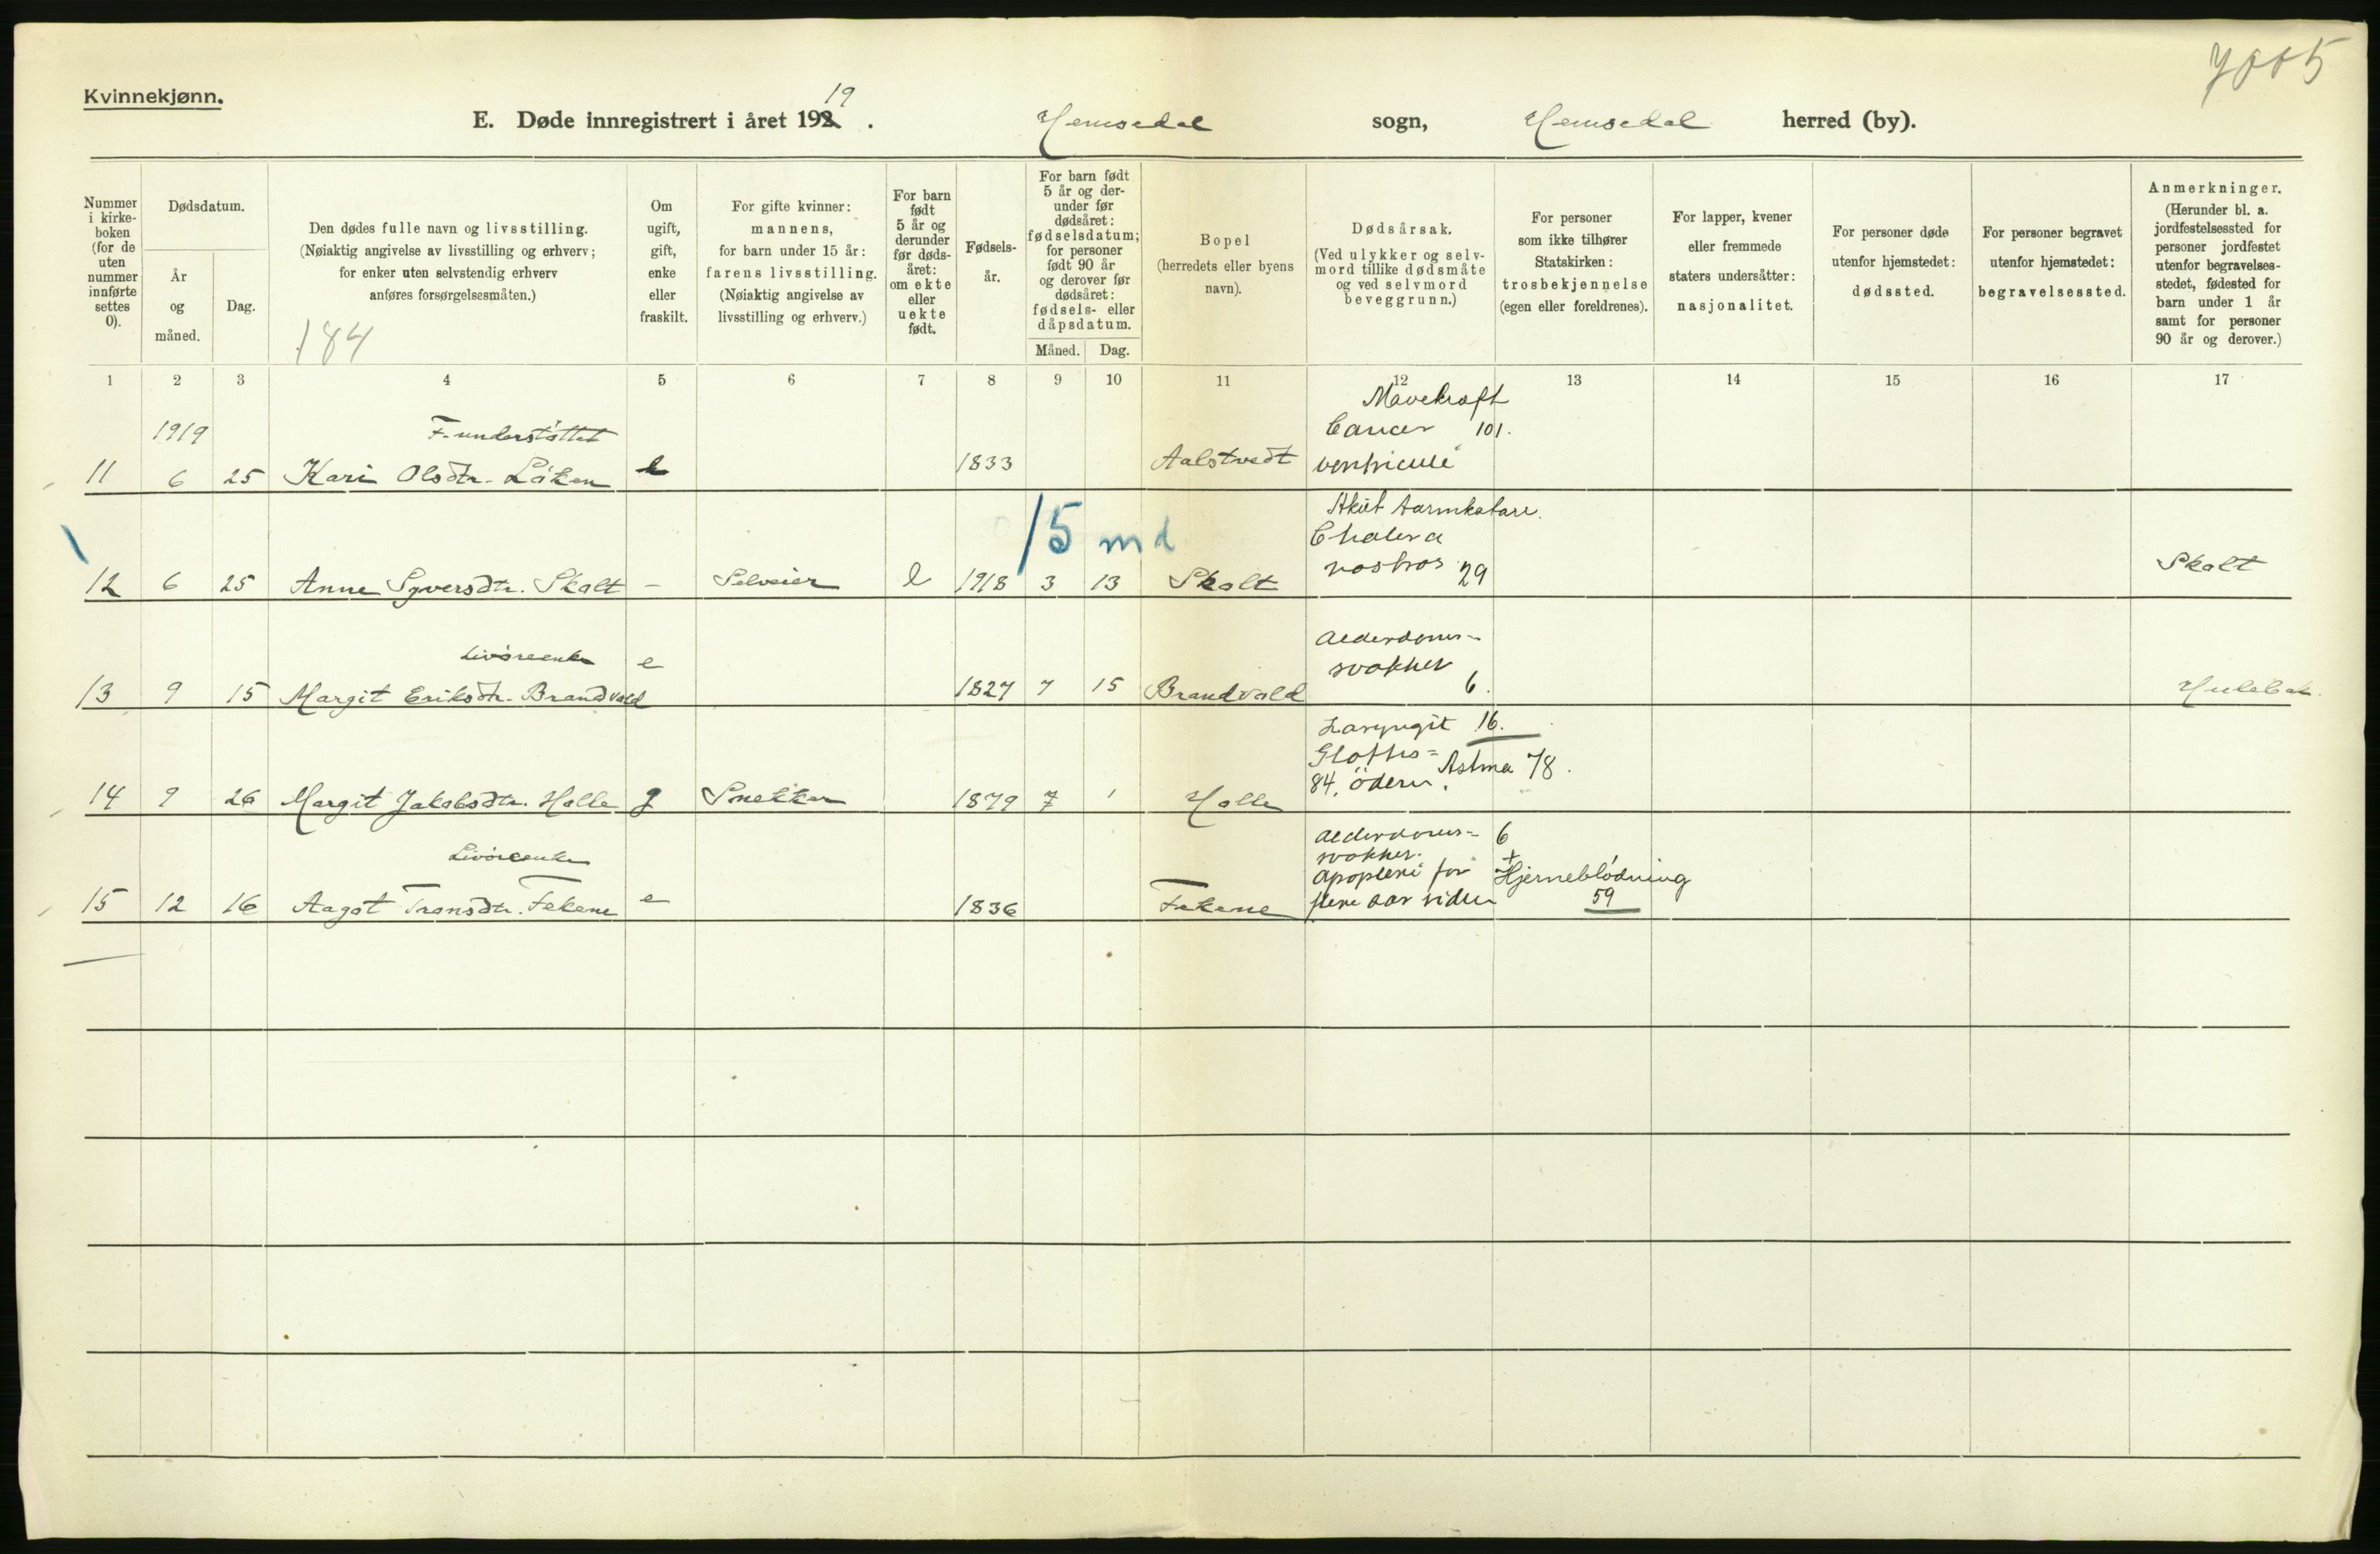 7005
Kvinnekjønn.
E. Døde innregistrert i året 192 19. Hemsedal sogn, Hemsedal herred (by).
Nummer i kirke- boken (for de uten nummer innførte settes 0).
Dødsdatum.
År og måned.
Dag.
Den dødes fulle navn og livsstilling.
(Nøiaktig angivelse av livsstilling og erhverv;
for enker uten selvstendig erhverv
anføres forsørgelsesmåten.)
184
Om ugift, gift, enke eller fraskilt.
For gifte kvinner:
mannens,
for barn under 15 år:
farens livsstilling.
(Nøiaktig angivelse av
livsstilling og erhverv.)
For barn født 5 år og derunder før døds- året: om ekte eller uekte født.
Fødsels- år.
For barn født 5 år og der- under før dødsåret: fødselsdatum; for personer født 90 år og derover før dødsåret: fødsels- eller dåpsdatum.
Måned. Dag.
Bopel
(herredets eller byens
navn).
Dødsårsak.
(Ved ulykker og selv-
mord tillike dødsmåte
og ved selvmord
beveggrunn.)
For personer
som ikke tilhører
Statskirken:
trosbekjennelse
(egen eller foreldrenes).
For lapper, kvener
eller fremmede
staters undersåtter:
nasjonalitet.
For personer døde
utenfor hjemstedet:
dødssted.
For personer begravet
utenfor hjemstedet:
begravelsessted.
Anmerkninger.
(Herunder bl. a.
jordfestelsessted for
personer jordfestet
utenfor begravelses-
stedet, fødested for
barn under 1 år
samt for personer
90 år og derover.)
1 2 3 4 5 6 7 8 9 10 11 12 13 14 15 16 17
Mavekræft
1919 F. understöttet Cancer 101.
11 6 25 Kari Olsdtr. Löken e 1833 Aalstvedt ventriculi
15 md Akut tarmkatarr.
Cholera
12 6 25 Anne Syversdtr. Skalt - Selveier e 1918 3 13 Skolt nostras 29 Skolt
Livöreenke Alderdoms-
13 9 15 Margit Eriksdtr. Brandvold e 1827 7 15 Brandvold svakhet 6.
Laryngit 16.
Glottis= Astma 78.
14 9 26 Margit Jakobsdtr. Holle g Snekker 1879 7 1 Holle 84. ödem.
Alderdoms= 6
Livöreenke svakhet. +
apoplexi for Hjerneblödning
15 12 16 Aagot Transdtr. Fekene e 1836 Fekene flere aar siden 59